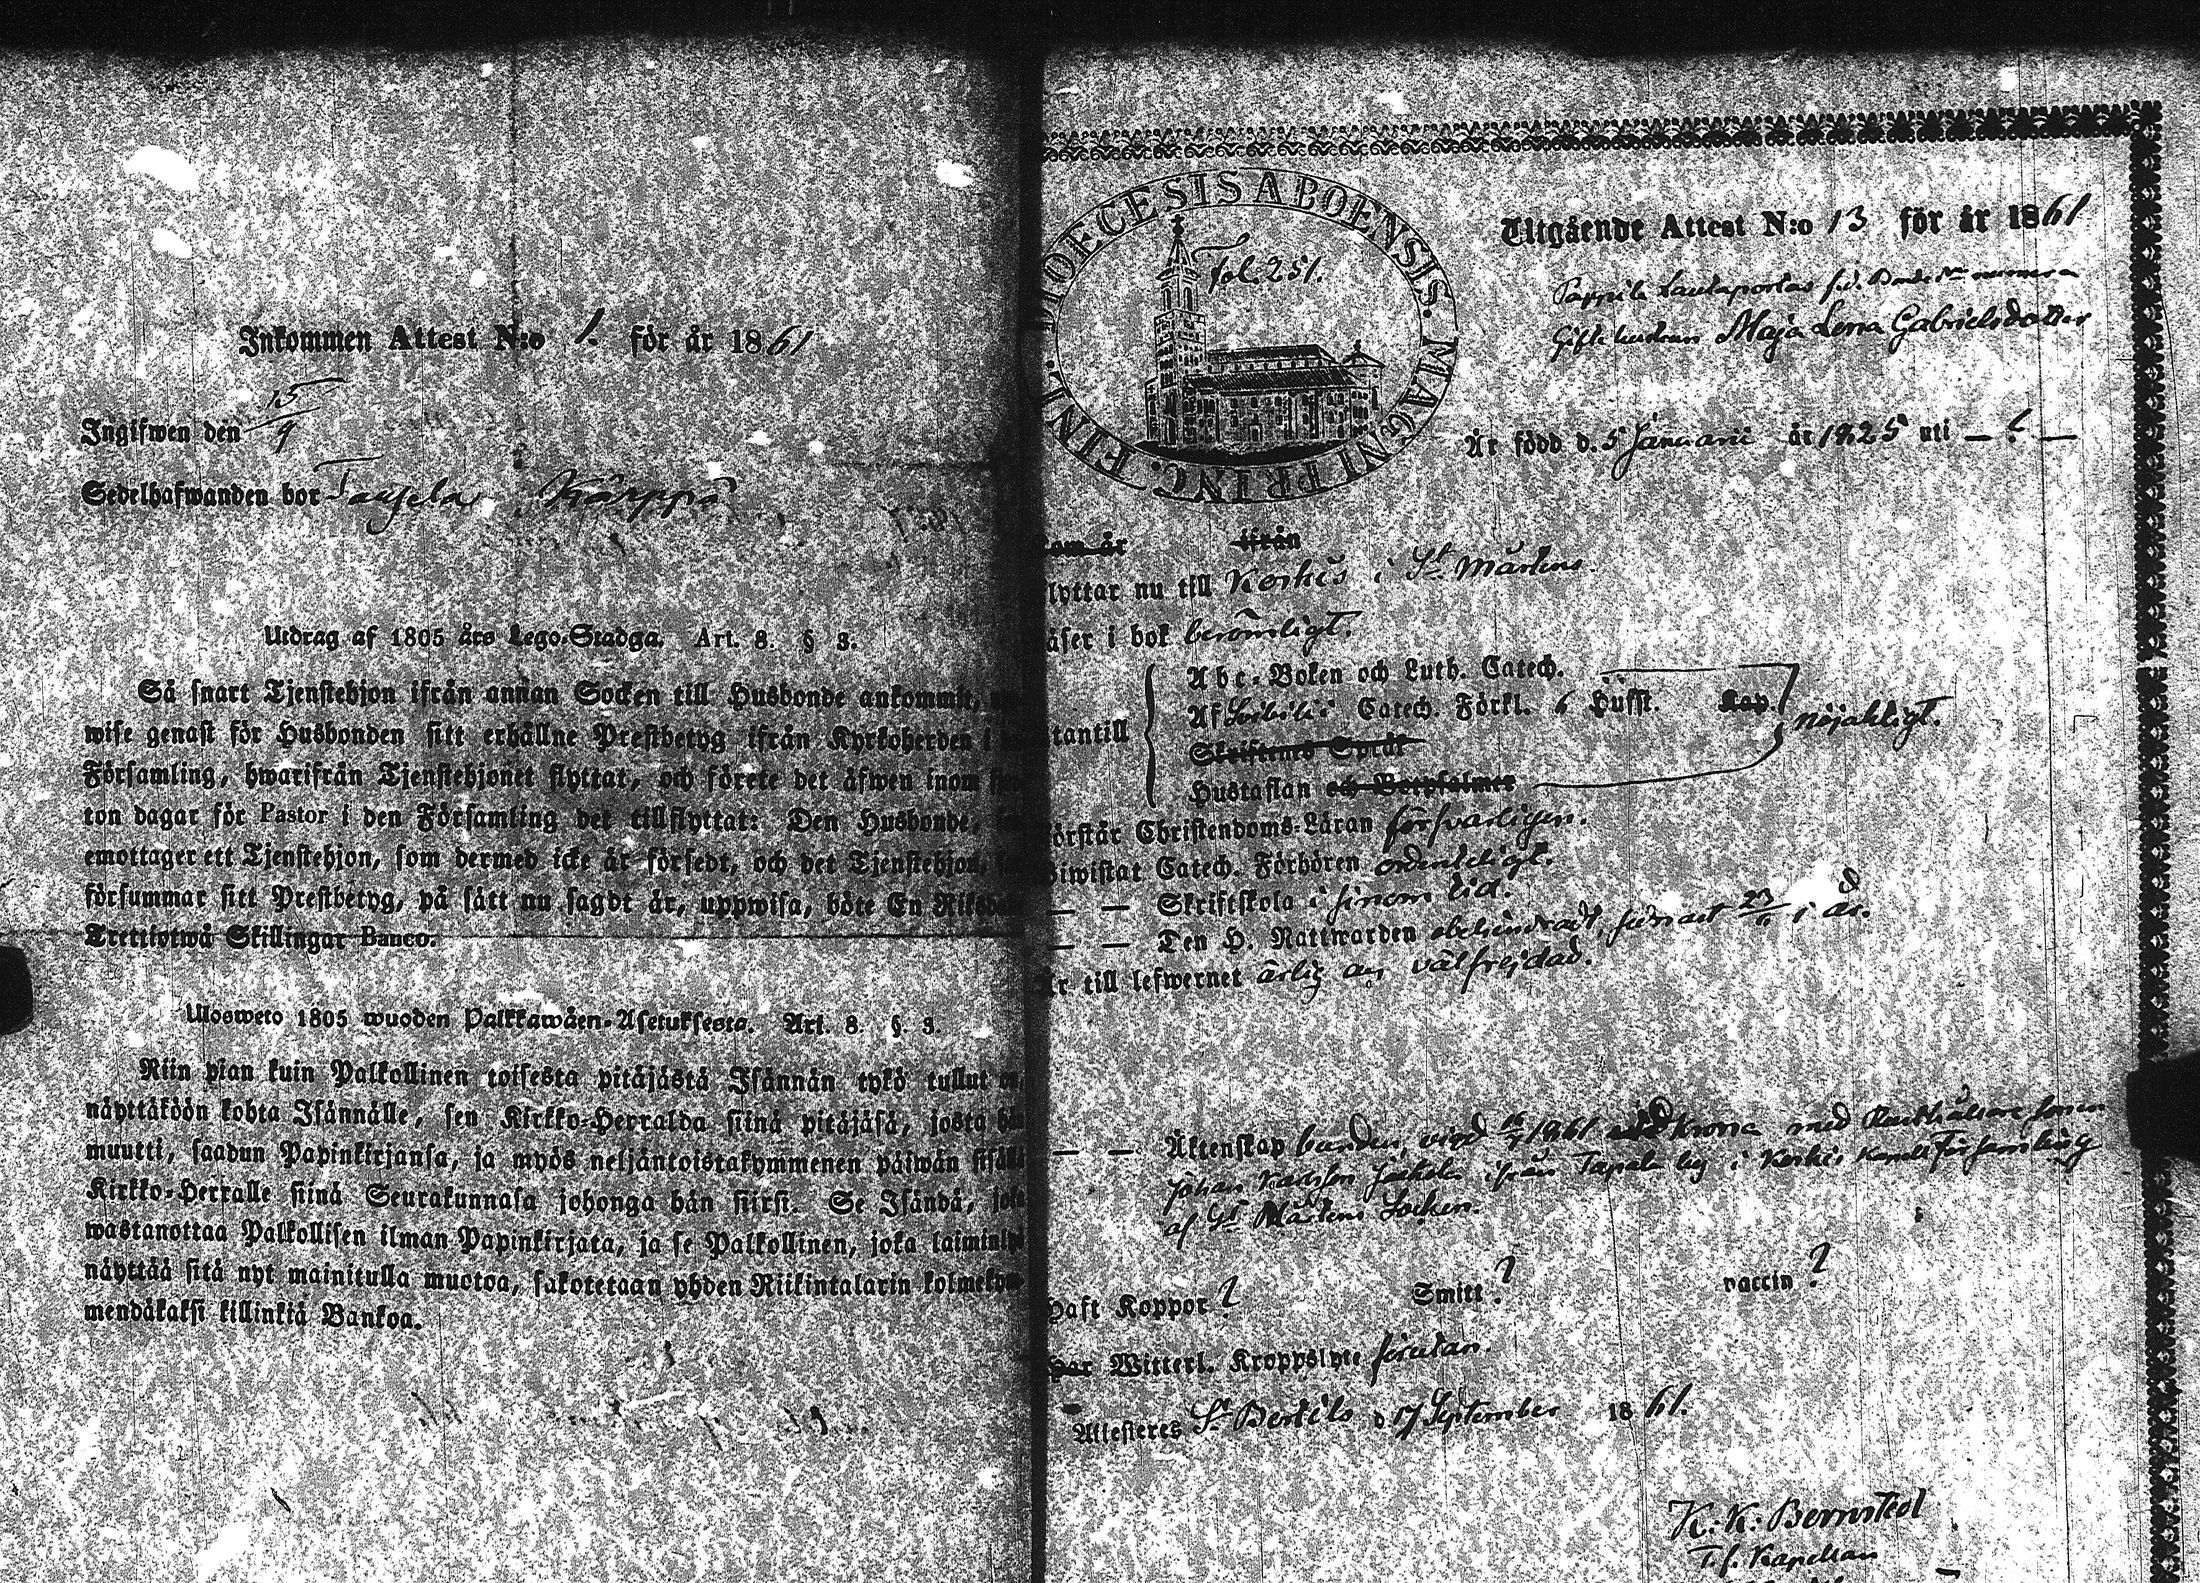 Inkommen Attest N:o 1. för år 1861
Ingifwen den 15/9
Sedelhafwanden bor Kärppä
Utdrag af 1805 års Lego-Stadga. Art. 8. § 3.
Så snart Tjenstehjon ifrån annan Socken till Husbonde ankommit,
wise genast för Husbonden sitt erhållne Prestbetyg ifrån Kyrkoherden i
Församling, hwarifrån Tjenstehjonet flyttat, och förete det äfwen inom
ton dagar för Pastor i den Församling det tillflyttat: Den Husbonde,
emottager ett Tjenstehjon, som dermed icke är försedt, och det Tjenstehjon,
försummar sitt Prestbetyg, på sätt nu sagdt är, uppwisa, böte En
Trettiotwå Skillingar Banco.
Ulosweto 1805 wuoden Palkkawäen-Asetuksesta. Art. 8. §. 3.
Niin pian kuin Palkollinen toisesta pitäjästä Isännän tykö tullut on,
näyttäköön kohta Isännälle, sen Kirkko-Herralda siinä pitäjäsä, josta
muutti, saadun Papinkirjansa, ja myös neljäntoistakymmenen päiwän
Kirkko-Herralle siinä Seurakunnasa johonga hän siirsi. Se Isändä,
wastanottaa Palkollisen ilman Papinkirjata, ja se Palkollinen, joka
näyttää sitä nyt mainitulla muotoa, sakotetaan yhden Riikintalarin
mendäkaksi killinkiä Bankoa.
DIOECESIS ABOENSIS. MAGNI PRINC. FINL.
fol. 251.
Utgående Attest N:o 13 för år 1861
Gifta hustrun Maja Lena Gabrielsdotter
Är född d. 5 Januarii år 1825 uti — ? —
som år ifrån
lyttar nu till Korkis i St Mårtens.
äser i bok berömligt.
tantill
Abc-Boken och Luth. Catech.
Af Svebilii Catech. Förkl. 6 Hufst. Kap. nöjaktigt.
Skriftenes Språk
Hustaflan och Botpsalmer
örstår Christendoms-Läran försvarligen.
iwistat Catech. Förhören ordenteligt.
— — Skriftskola i sinom tid.
— — Den H. Nattwarden obehindradt, senast 23/6 i år.
är till lefwernet ärlig och välfrejdad.
— — Äktenskap bunden, vigd 1861 med
Johan Karlsson Jakola ifrån by i Korkis Kapell Församling
af St Mårtens Socken.
Haft Koppor ? Smitt ? vaccin ?
Har Witterl. Kroppslyte förutan.
Attesteres St Bertils d 17 September 1861.
K. K. Bernsted
T. f. Kapellan